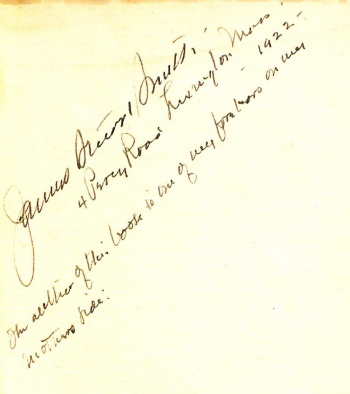 James Stuart Smith.
4 Percy Road Lexington Mass.
- 1922 -
The author of this book is one of my forebears on my
mother's side.